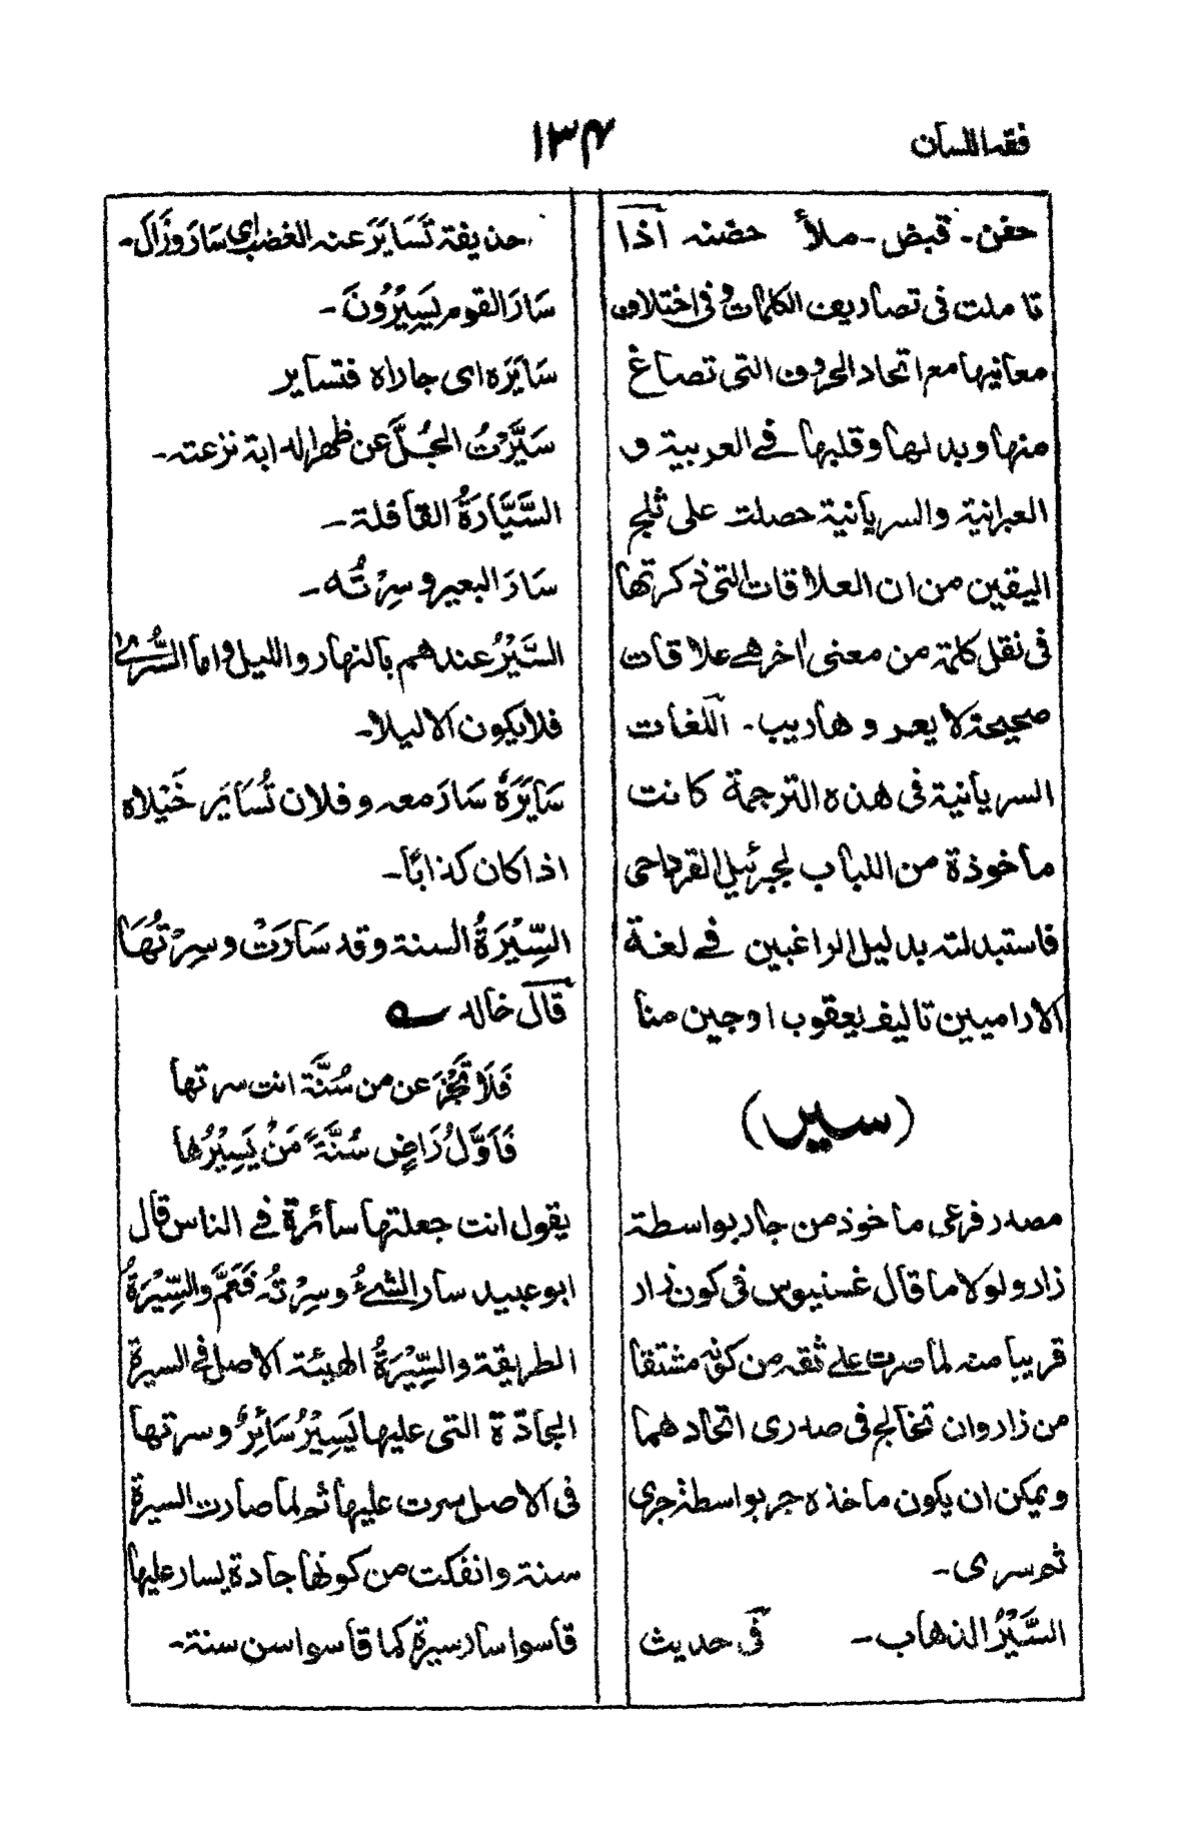 فقه اللسان
۱۳۴
حفن - قبض - ملأ حضنه اذا
تاملت فی تصاریف الکلمات وفی اختلاف
معانیها مع اتحاد الحروف التی تصاغ
منها وبدلها وقلبها فے العربیة و
العبرانیة والسریانیة حصلت علی ثلج
الیقین من ان العلاقات التی ذکرتها
فی نقل کلمة من معنی لٰاخر هے علاقات
صحیحة لا یعر وها ریب - اللغات
السریانیة فی هذه الترجمة کانت
ماخوذة من اللباب لجبرئیل القرداحی
فاستبدلته بدلیل الراغبین فے لغة
الارامیین تالیف یعقوب اوجین منا
(سیر)
مصدر فرعی ماخوذ من جار بواسطة
زار ولولا ما قال غسنیوس فی کون زار
قریبا منه لما صرت علے ثقه من کونه مشتقا
من زار وان تخالج فی صدری اتحادهما
ویمکن ان یکون ماخذه جر بواسطة جری
ثم سری -
السَّیْرُ الذهاب - فی حدیث
حذیفة تَسَایَرَ عنه الغضب ای سَارَ وزَالَ -
سَارَ القوم یَسِیْرُوْنَ -
سَایَرَه ای جاراه فتسایر
سَیَّرْتُ الجُلَّ عن ظهر الدابة نزعته -
السَّیَّارَةُ القافلة -
سَارَ البعیر وسِرْتُه -
السَّیْرُ عندهم بالنهار واللیل واما السُّرٰی
فلا یکون الا لیلا -
سَایَرَهٗ سَارَ معه وفلان تُسَایَر خَیْلاه
اذا کان کذابًا -
السِّیْرَةُ السنة وقد سَارَتْ وسِرْتُهَا
قال خالد
فَلَا تَجْزَعَن من سُنَّة انت سرتها
فَاَوَّلُ رَاضٍ سُنَّةً مَنْ یَسِیْرُها
یقول انت جعلتها سائرة فے الناس قال
ابوعبید سار الشیءُ وسِرْتُه فَعَمَّ والسِّیْرَةُ
الطریقة والسِّیْرَةُ الهیئة الاصل فی السیرة
الجادّة التی علیها یَسِیْرُ سَائِرٌ وسرتها
فی الاصل سرت علیها ثم لما صارت السیرة
سنة وانفکت من کونها جادة یسار علیها
قاسوا سار سیرة کما قاسوا سن سنة -